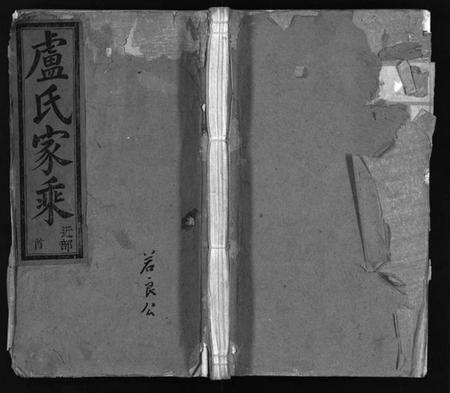 盧氏家乘
近部
首
若良公